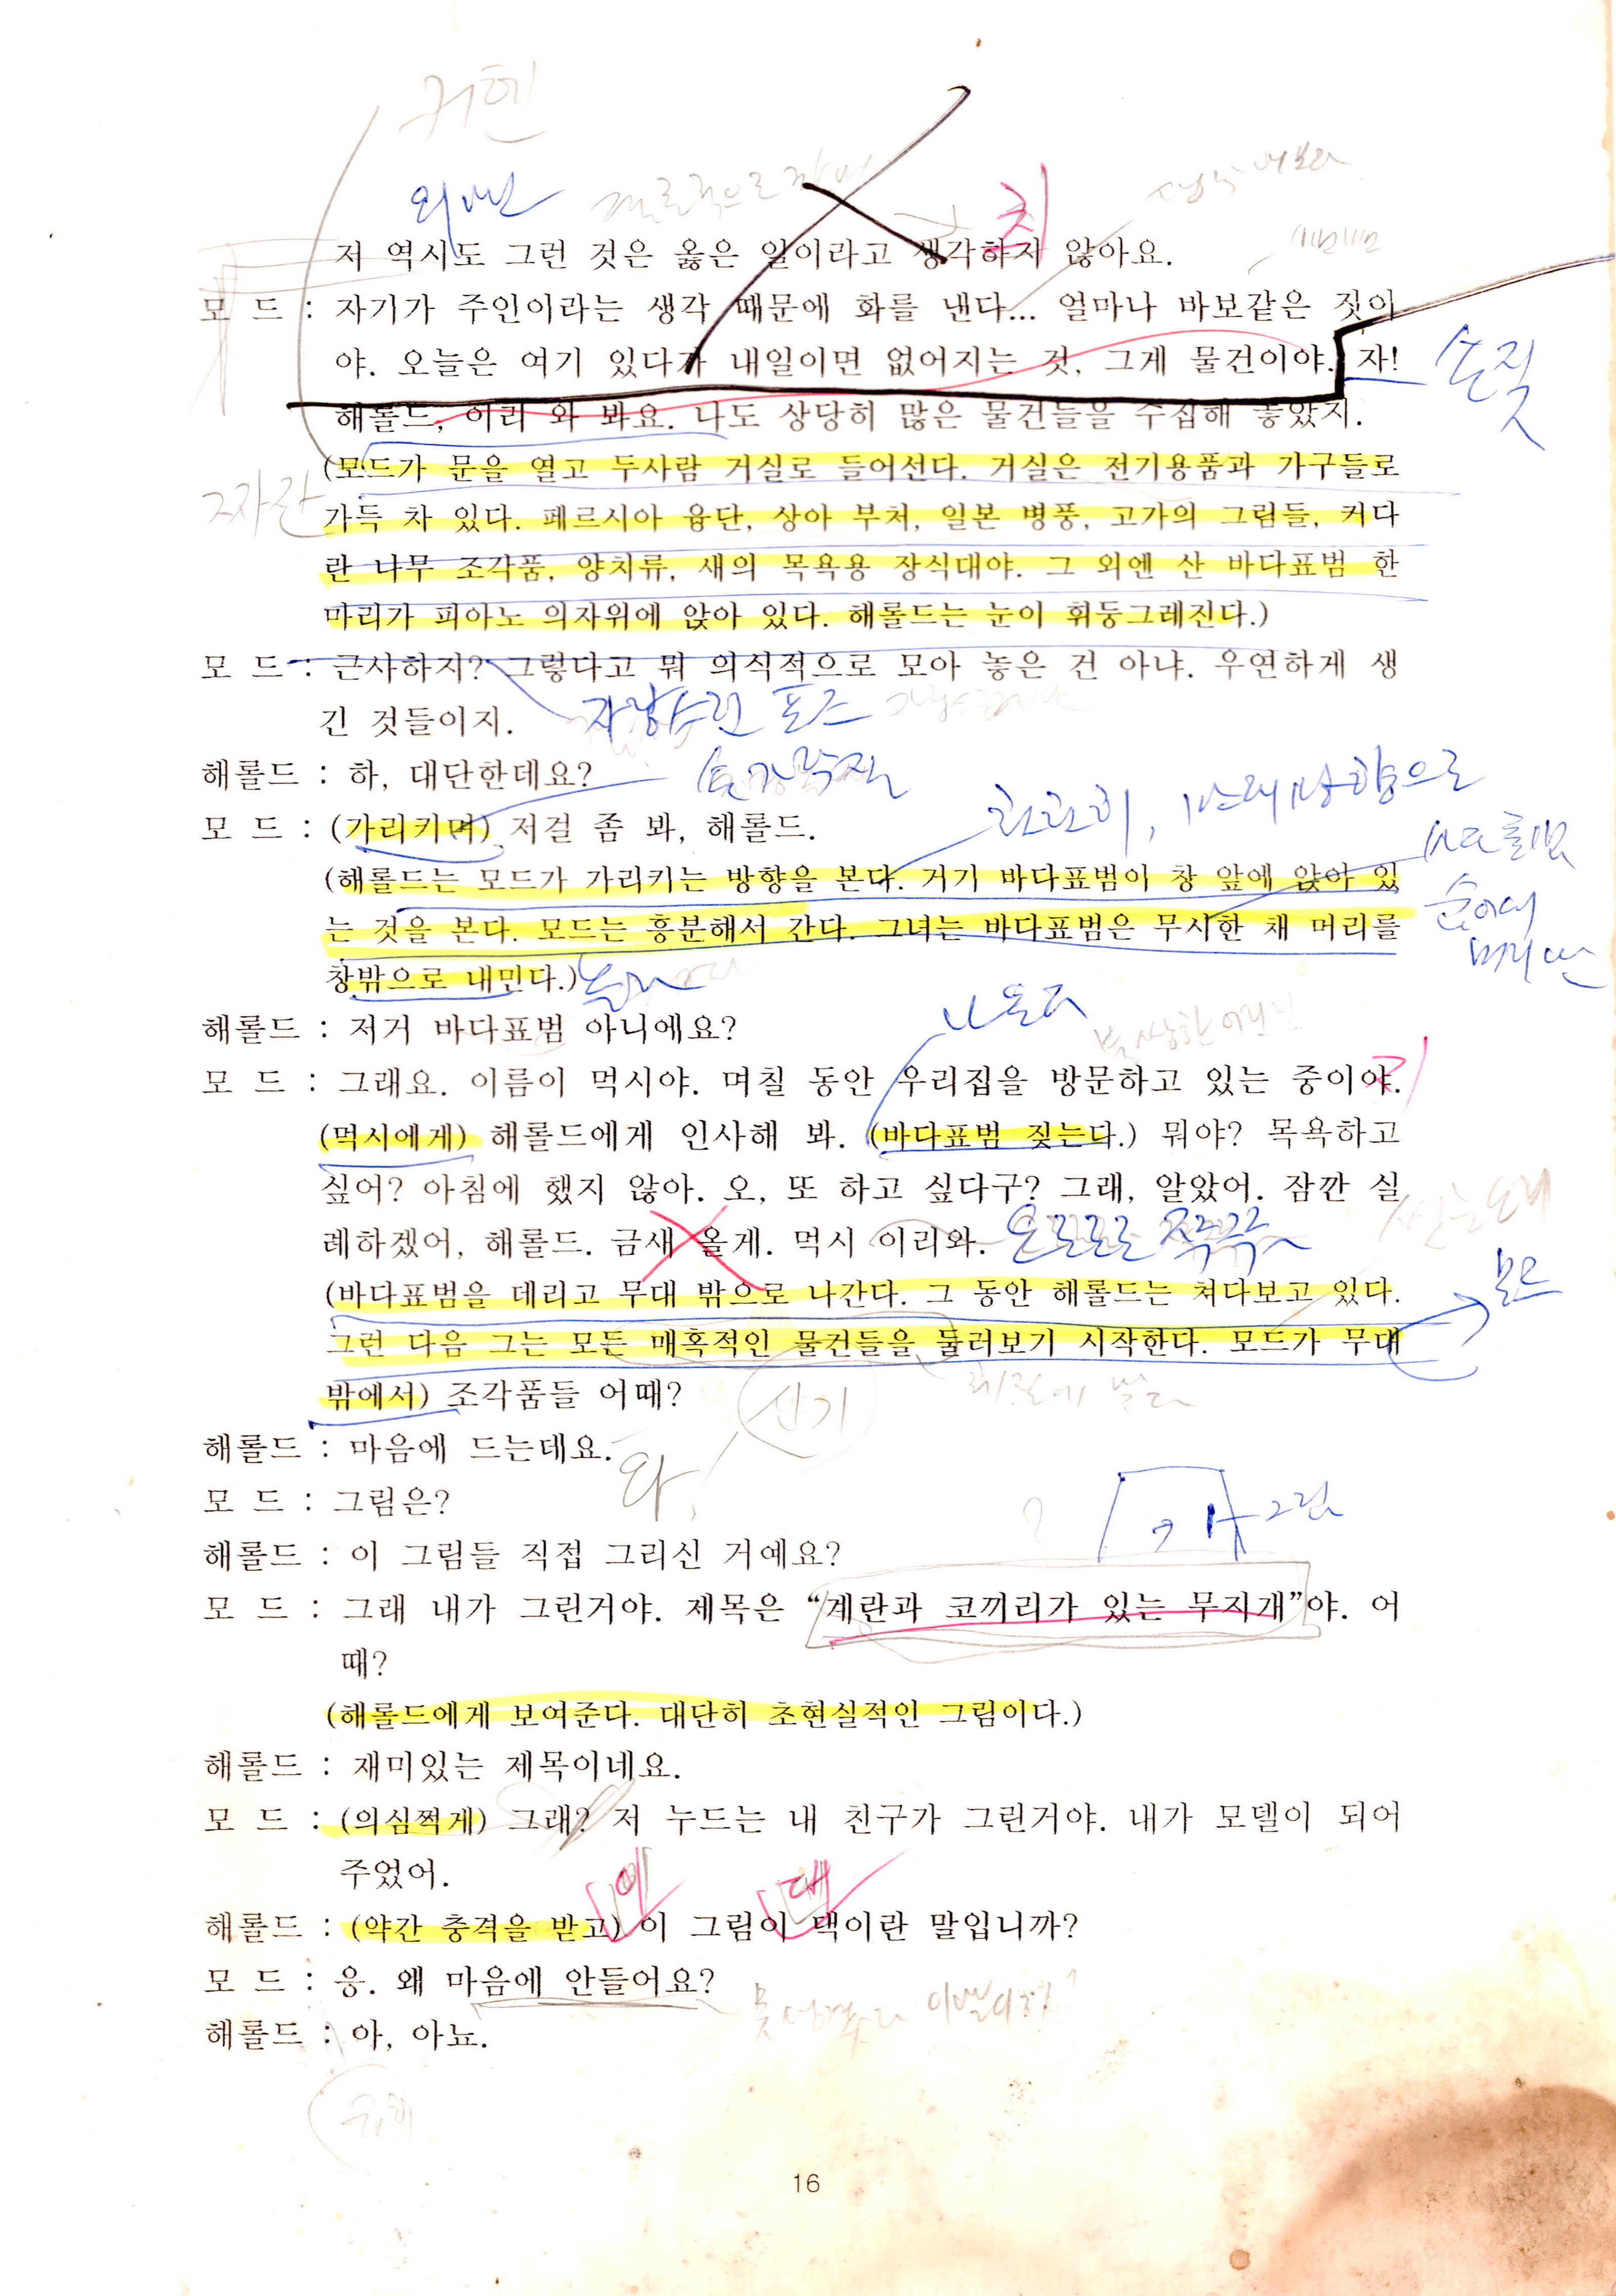 귀헨
외면
치
저 역시도 그런 것은 옳은 일이라고 생각하지 않아요.
모 드 : 자기가 주인이라는 생각 때문에 화를 낸다... 얼마나 바보같은 짓이
야. 오늘은 여기 있다가 내일이면 없어지는 것, 그게 물건이야. 자!
손짓
해롤드, 이리 와 봐요. 나도 상당히 많은 물건들을 수집해 놓았지.
(모드가 문을 열고 두사람 거실로 들어선다. 거실은 전기용품과 가구들로
가득 차 있다. 페르시아 융단, 상아 부처, 일본 병풍, 고가의 그림들, 커다
란 나무 조각품, 양치류, 새의 목욕용 장식대야. 그 외엔 산 바다표범 한
마리가 피아노 의자위에 앉아 있다. 해롤드는 눈이 휘둥그레진다.)
모 드 : 근사하지? 그렇다고 뭐 의식적으로 모아 놓은 건 아냐. 우연하게 생
긴 것들이지.
자랑스런 포즈
해롤드 : 하, 대단한데요?
손가락질
모 드 : (가리키며) 저걸 좀 봐, 해롤드.
(해롤드는 모드가 가리키는 방향을 본다. 거기 바다표범이 창 앞에 앉아 있
는 것을 본다. 모드는 흥분해서 간다. 그녀는 바다표범은 무시한 채 머리를
창밖으로 내민다.)
해롤드 : 저거 바다표범 아니에요?
모 드 : 그래요. 이름이 먹시야. 며칠 동안 우리집을 방문하고 있는 중이야.
(먹시에게) 해롤드에게 인사해 봐. (바다표범 짖는다.) 뭐야? 목욕하고
싶어? 아침에 했지 않아. 오, 또 하고 싶다구? 그래, 알았어. 잠깐 실
례하겠어, 해롤드. 금새 올게. 먹시 이리와.
오르르르 쭉쭉쭉
(바다표범을 데리고 무대 밖으로 나간다. 그 동안 해롤드는 쳐다보고 있다.
모드
그런 다음 그는 모든 매혹적인 물건들을 둘러보기 시작한다. 모드가 무대
밖에서) 조각품들 어때?
신기
해롤드 : 마음에 드는데요.
와,
모 드 : 그림은?
그림
해롤드 : 이 그림들 직접 그리신 거예요?
모 드 : 그래 내가 그린거야. 제목은 “계란과 코끼리가 있는 무지개”야. 어
때?
(해롤드에게 보여준다. 대단히 초현실적인 그림이다.)
해롤드 : 재미있는 제목이네요.
모 드 : (의심쩍게) 그래? 저 누드는 내 친구가 그린거야. 내가 모델이 되어
주었어.
해롤드 : (약간 충격을 받고) 이 그림이 댁이란 말입니까?
모 드 : 응. 왜 마음에 안들어요?
해롤드 : 아, 아뇨.
16